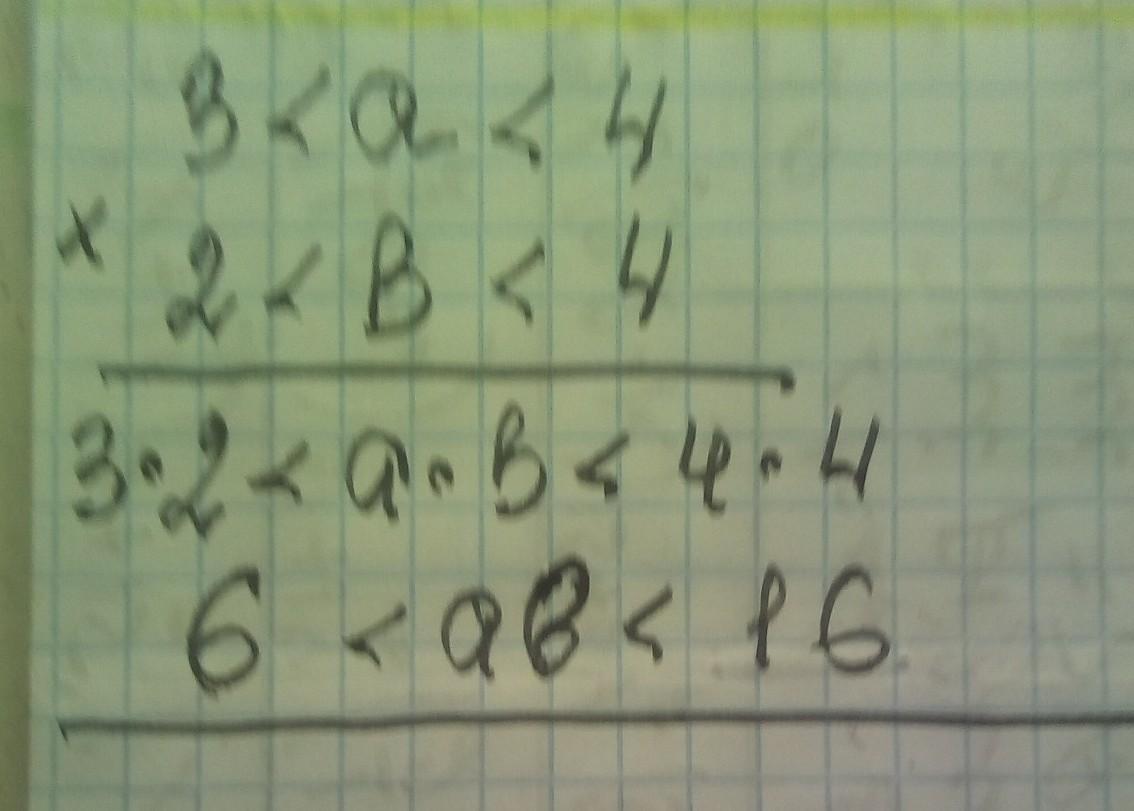 3 < a < 4
×
2 < в < 4
3·2 < a·в < 4·4
6 < aв < 16